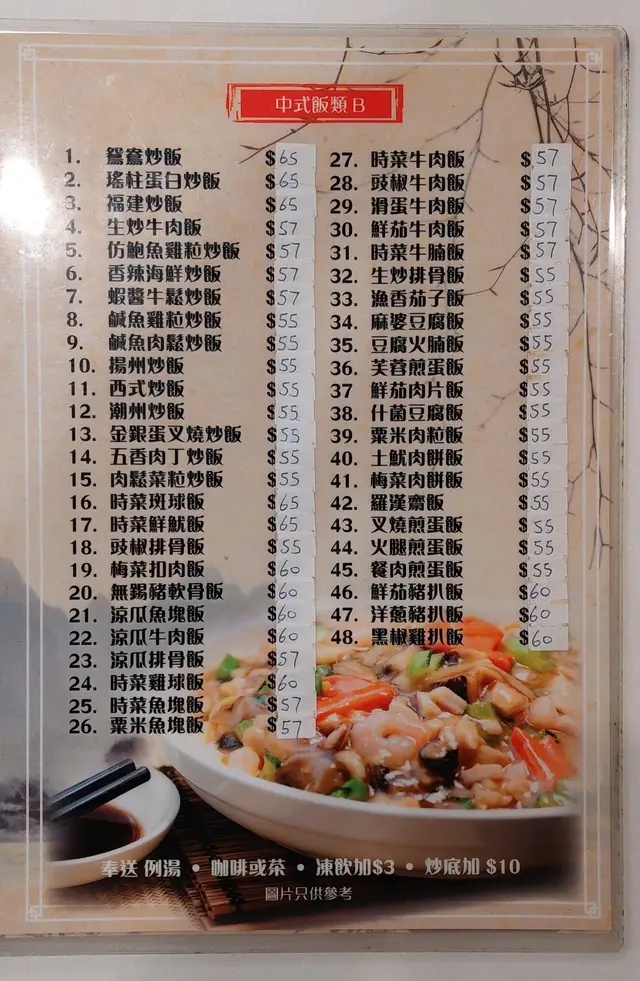 中式飯類 B
1. 鴛鴦炒飯 $65
2. 瑤柱蛋白炒飯 $65
3. 福建炒飯 $65
4. 生炒牛肉飯 $57
5. 仿鮑魚雞粒炒飯 $57
6. 香辣海鮮炒飯 $57
7. 蝦醬牛鬆炒飯 $57
8. 鹹魚雞粒炒飯 $55
9. 鹹魚肉鬆炒飯 $55
10. 揚州炒飯 $55
11. 西式炒飯 $55
12. 潮州炒飯 $55
13. 金銀蛋叉燒炒飯 $55
14. 五香肉丁炒飯 $55
15. 肉鬆菜粒炒飯 $55
16. 時菜斑球飯 $65
17. 時菜鮮魷飯 $65
18. 豉椒排骨飯 $55
19. 梅菜扣肉飯 $60
20. 無錫豬軟骨飯 $60
21. 涼瓜魚塊飯 $60
22. 涼瓜牛肉飯 $60
23. 涼瓜排骨飯 $57
24. 時菜雞球飯 $60
25. 時菜魚塊飯 $57
26. 粟米魚塊飯 $57
27. 時菜牛肉飯 $57
28. 豉椒牛肉飯 $57
29. 滑蛋牛肉飯 $57
30. 鮮茄牛肉飯 $57
31. 時菜牛腩飯 $57
32. 生炒排骨飯 $55
33. 漁香茄子飯 $55
34. 麻婆豆腐飯 $55
35. 豆腐火腩飯 $55
36. 芙蓉煎蛋飯 $55
37 鮮茄肉片飯 $55
38. 什菌豆腐飯 $55
39. 粟米肉粒飯 $55
40. 土魷肉餅飯 $55
41. 梅菜肉餅飯 $55
42. 羅漢齋飯 $55
43. 叉燒煎蛋飯 $55
44. 火腿煎蛋飯 $55
45. 餐肉煎蛋飯 $55
46. 鮮茄豬扒飯 $60
47. 洋蔥豬扒飯 $60
48. 黑椒雞扒飯 $60
奉送 例湯 • 咖啡或茶 • 凍飲加$3 • 炒底加 $10
圖片只供參考